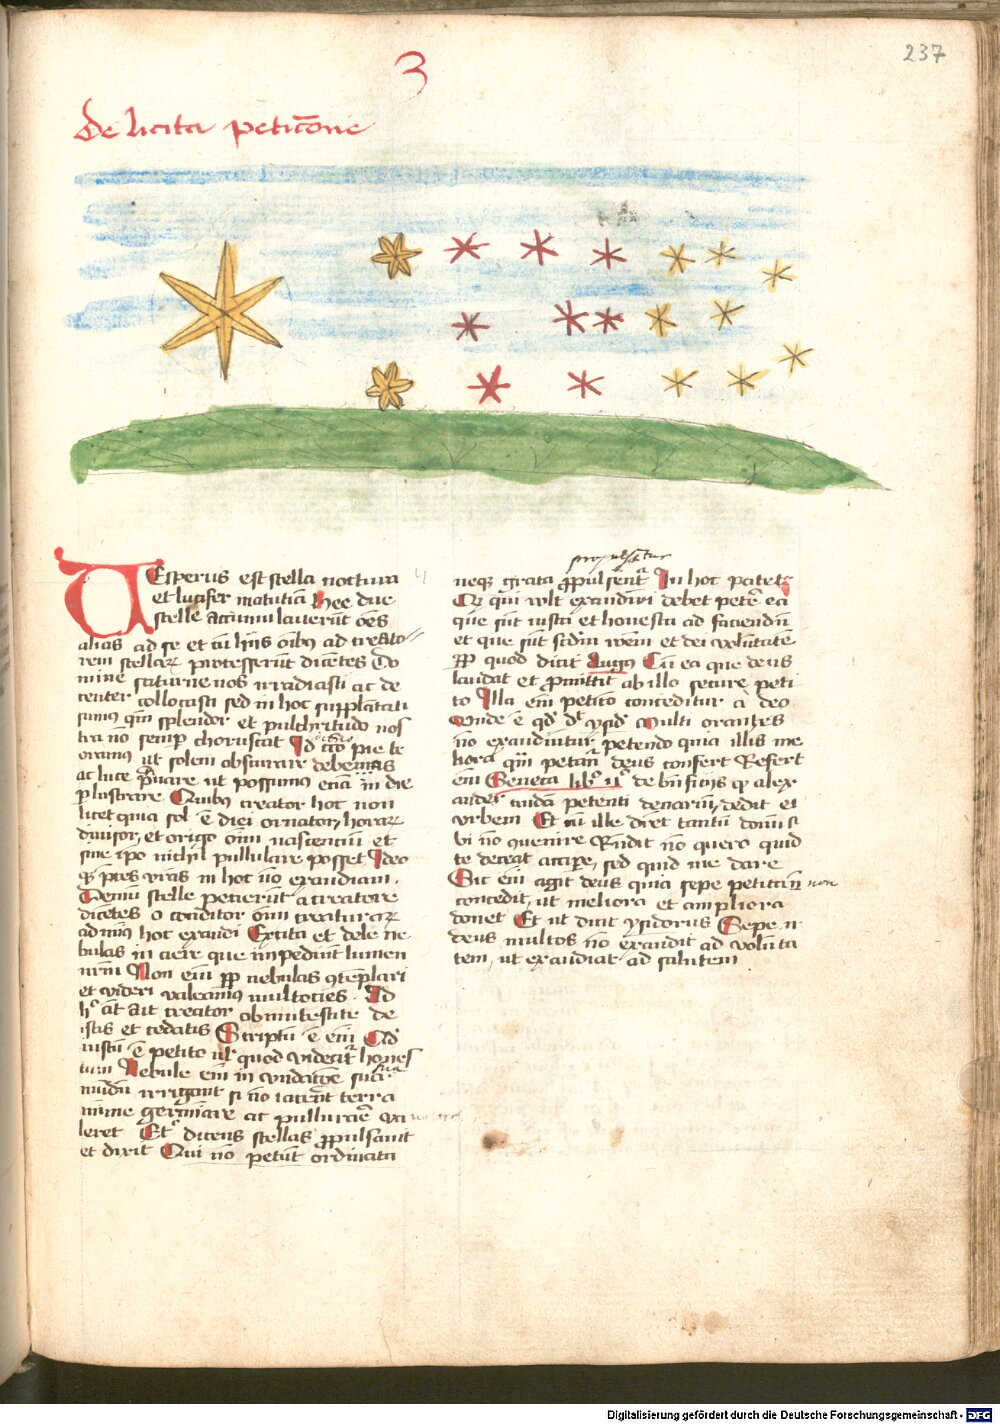 237
3
De licita peticōne
VEsperus est stella noctura
et lucifer matutīa Hee due
stelle accumulauerūt oēs
alias ad se et cū hijs oībꝯ ad creato
rem stellaꝝ processerūt dicētes Do
mine saturne nos irradiasti ac de
center collocasti sed in hoc supplātati
sumꝯ qm̄ splendor et pulchritudo nos
tra nō semꝑ choruscat Id cco pie te
oramus ut solem obscurare debemꝯ
ac luce p̄uare ut possumus eciā in die
ꝑlustrare Quibꝯ creator hoc non
licet quia sol ē diei ornator, horaꝝ
diuisor, et origo oīm nascenciū et
sine ip̄o nichil pullulare posset Ideo
q̄ p̄ces vr̄as in hoc nō exaudiam.
Demū stelle pecierūt a creatore
dicētes o conditor oīm creaturaꝝ
ad minꝯ hoc exaudi Excita et dele ne
bulas in aere que impediūt lumen
nr̄m Non eīm ꝓp̄ nebulas ꝯtēplari
et videri valeamꝯ multocies. Ad
h̄ aūt ait creator obmutescite de
istis et cedatis Scriptū ē eīm Qd̄
iustū ē petito ul̄ quod videat̄ hones
tum Nebule eīm in vndacōe sua
mūdū irrigant si nō iacent̄ terra
mīme germīare ac pullulare va
leret Et̄ dicens stellas ꝓpulsauit
et dixit Qui nō petūt ordinata
propulsātur
neqꝫ grata ꝓpulsent̄ In hoc patet
Qꝫ qui vult exaudiri debet pete͛ ea
que sūt iusta et honesta ad faciendū
et que sūt scd̄m rōem et dei volūtatē
ꝓp̄ quod dicit Augꝯ Cū ea que deus
laudat et ꝓmittit ab illo secure peti
to Illa eīm peticō conceditur a deo
Vnde ē qd̄ dt̄ ysid̄ Multi orantes
nō exaudiūtur petendo quia illis me
liora qm̄ petāt deus confert Refert
eīm Seneca libꝰ iiꝰ de bn̄ficijs ꝙ alex
ander cuidā petenti denariū, dedit ei
vrbem Et cū ille diret tantū donū si
bi nō ꝯuenire Rn̄dit nō quero quid
te deceat accipe͛, sed quid me dare
Sic eīm agit deus quia sepe peticōn̄ non
concedit, ut meliora et ampliora
donet Et ut dicit ysidorus Sepe n̄
deus multos nō exaudit ad volūta
tem, ut exaudiat ad salutem
Digitalisierung gefördert durch die Deutsche Forschungsgemeinschaft - DFG